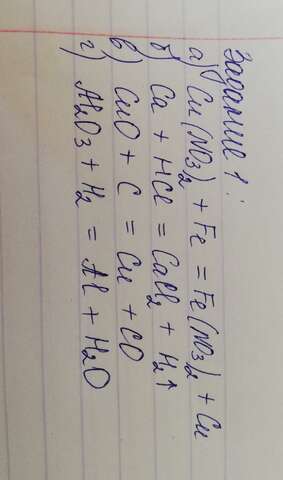 Задание 1:
а) Cu(NO3)2 + Fe = Fe(NO3)2 + Cu
б) Ca + HCl = CaCl2 + H2↑
в) CuO + C = Cu + CO
г) Al2O3 + H2 = Al + H2O